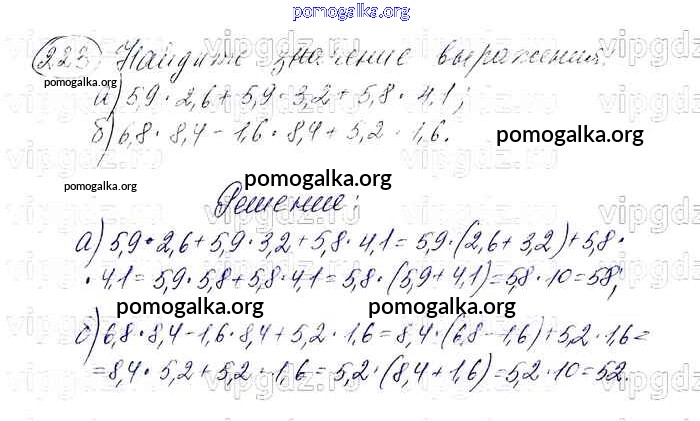 pomogalka.org
223. Найдите значение выражения:
pomogalka.org
а) 5,9 · 2,6 + 5,9 · 3,2 + 5,8 · 4,1;
б) 6,8 · 8,4 - 1,6 · 8,4 + 5,2 · 1,6.
pomogalka.org
pomogalka.org
pomogalka.org
Решение:
а) 5,9 · 2,6 + 5,9 · 3,2 + 5,8 · 4,1 = 5,9 · (2,6 + 3,2) + 5,8 ·
· 4,1 = 5,9 · 5,8 + 5,8 · 4,1 = 5,8 · (5,9 + 4,1) = 5,8 · 10 = 58;
pomogalka.org pomogalka.org
б) 6,8 · 8,4 - 1,6 · 8,4 + 5,2 · 1,6 = 8,4 · (6,8 - 1,6) + 5,2 · 1,6 =
= 8,4 · 5,2 + 5,2 · 1,6 = 5,2 · (8,4 + 1,6) = 5,2 · 10 = 52.